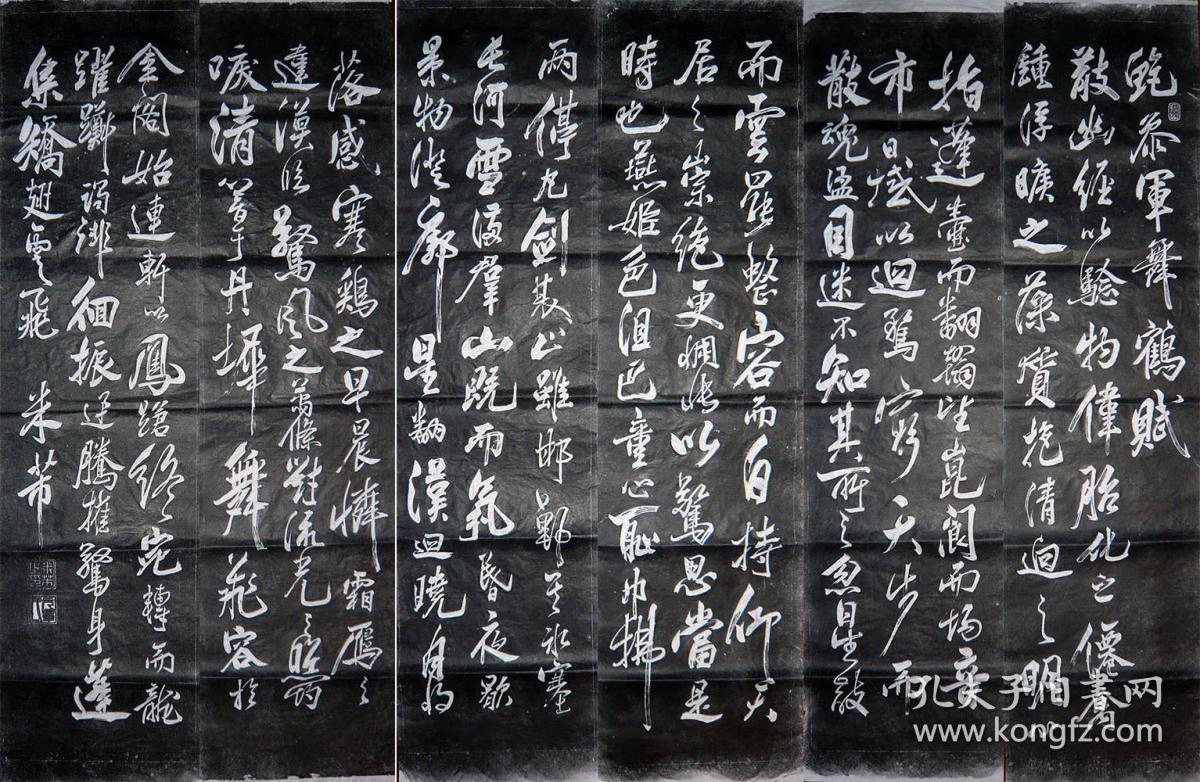 鮑參軍舞鶴賦
散幽經以驗物偉胎化之僊
鍾浮曠之藻質抱清迥之明心
指蓬壺而翻翰望崑閬而揚音
帀日域以迴騖窮天步而
散魂盪目迷不知其所之忽星散
而雲罷整容而自持仰天
居之崇絕更惆悵以驚思當是
時也燕姬色沮巴童心恥巾拂
兩停丸劍雙止雖邯鄲冰塞
長河雪滿群山既而氛昏夜歇
景物澄廓星翻漢迴曉月將
落感寒鷄之早晨憐霜雁之
違漠臨驚風之蕭條對流光之照灼
唳清響于丹墀舞飛容於
金閣始連軒以鳳蹌終宛轉而龍
躍躑躅徘徊振迅騰摧驚身蓬
集矯翅雪飛 米芾
孔夫子旧书网
www.kongfz.com